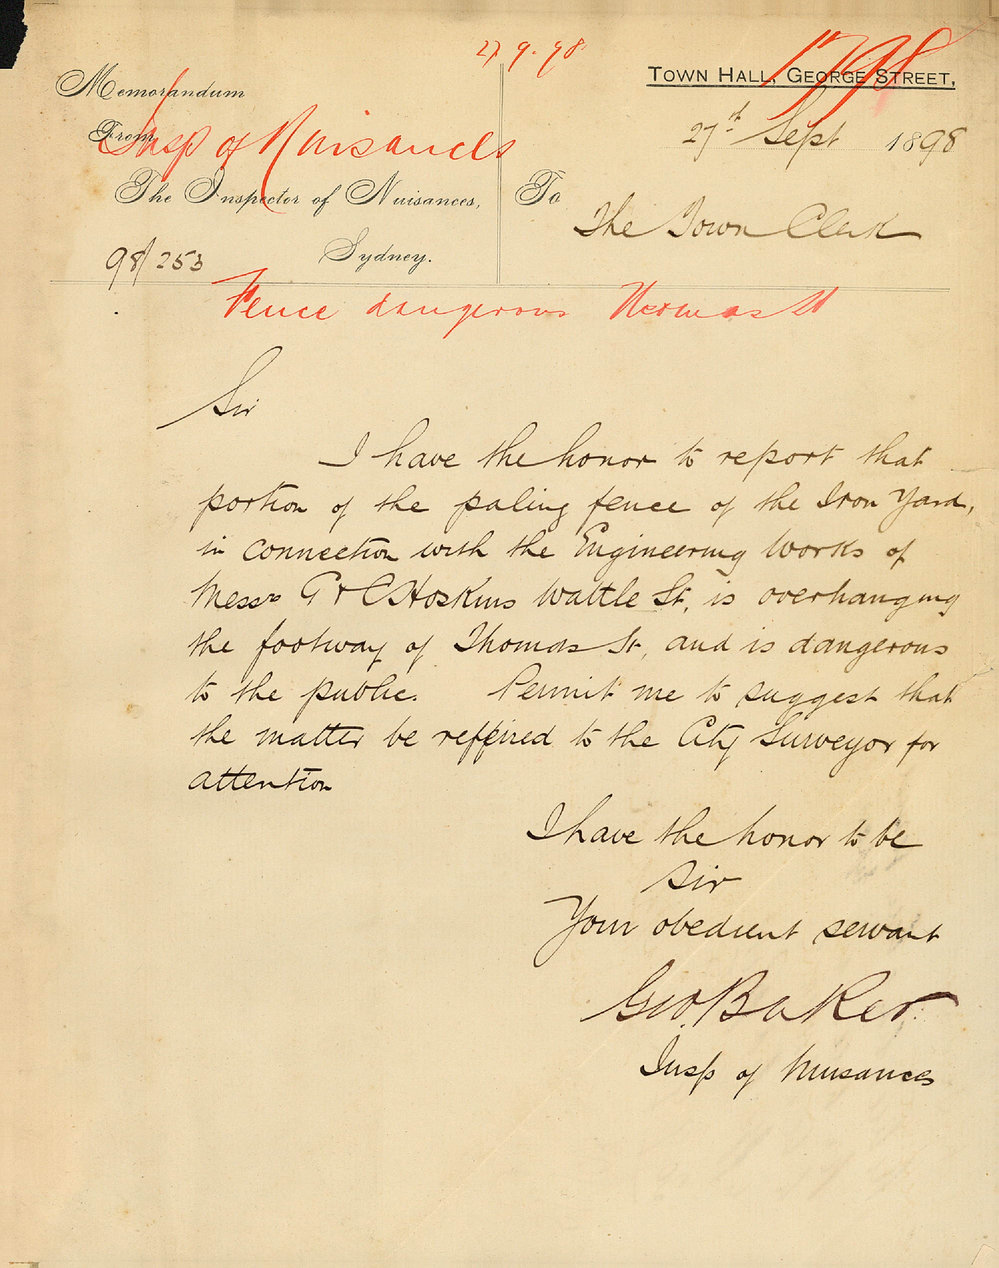 27.9.98
1798
TOWN HALL, GEORGE STREET,
Memorandum
From
Insp of Nuisances
27th Sept 1898
The Inspector of Nuisances,
To
The Town Clerk
98/253
Sydney.
Fence dangerous Thomas St
Sir
I have the honor to report that
portion of the paling fence of the Iron Yard,
in connection with the Engineering Works of
Messrs G & C Hoskins Wattle St, is overhanging
the footway of Thomas St, and is dangerous
to the public. Permit me to suggest that
the matter be reffered to the City Surveyor for
attention
I have the honor to be
Sir
Your obedient servant
Geo. Baker
Insp of Nuisances